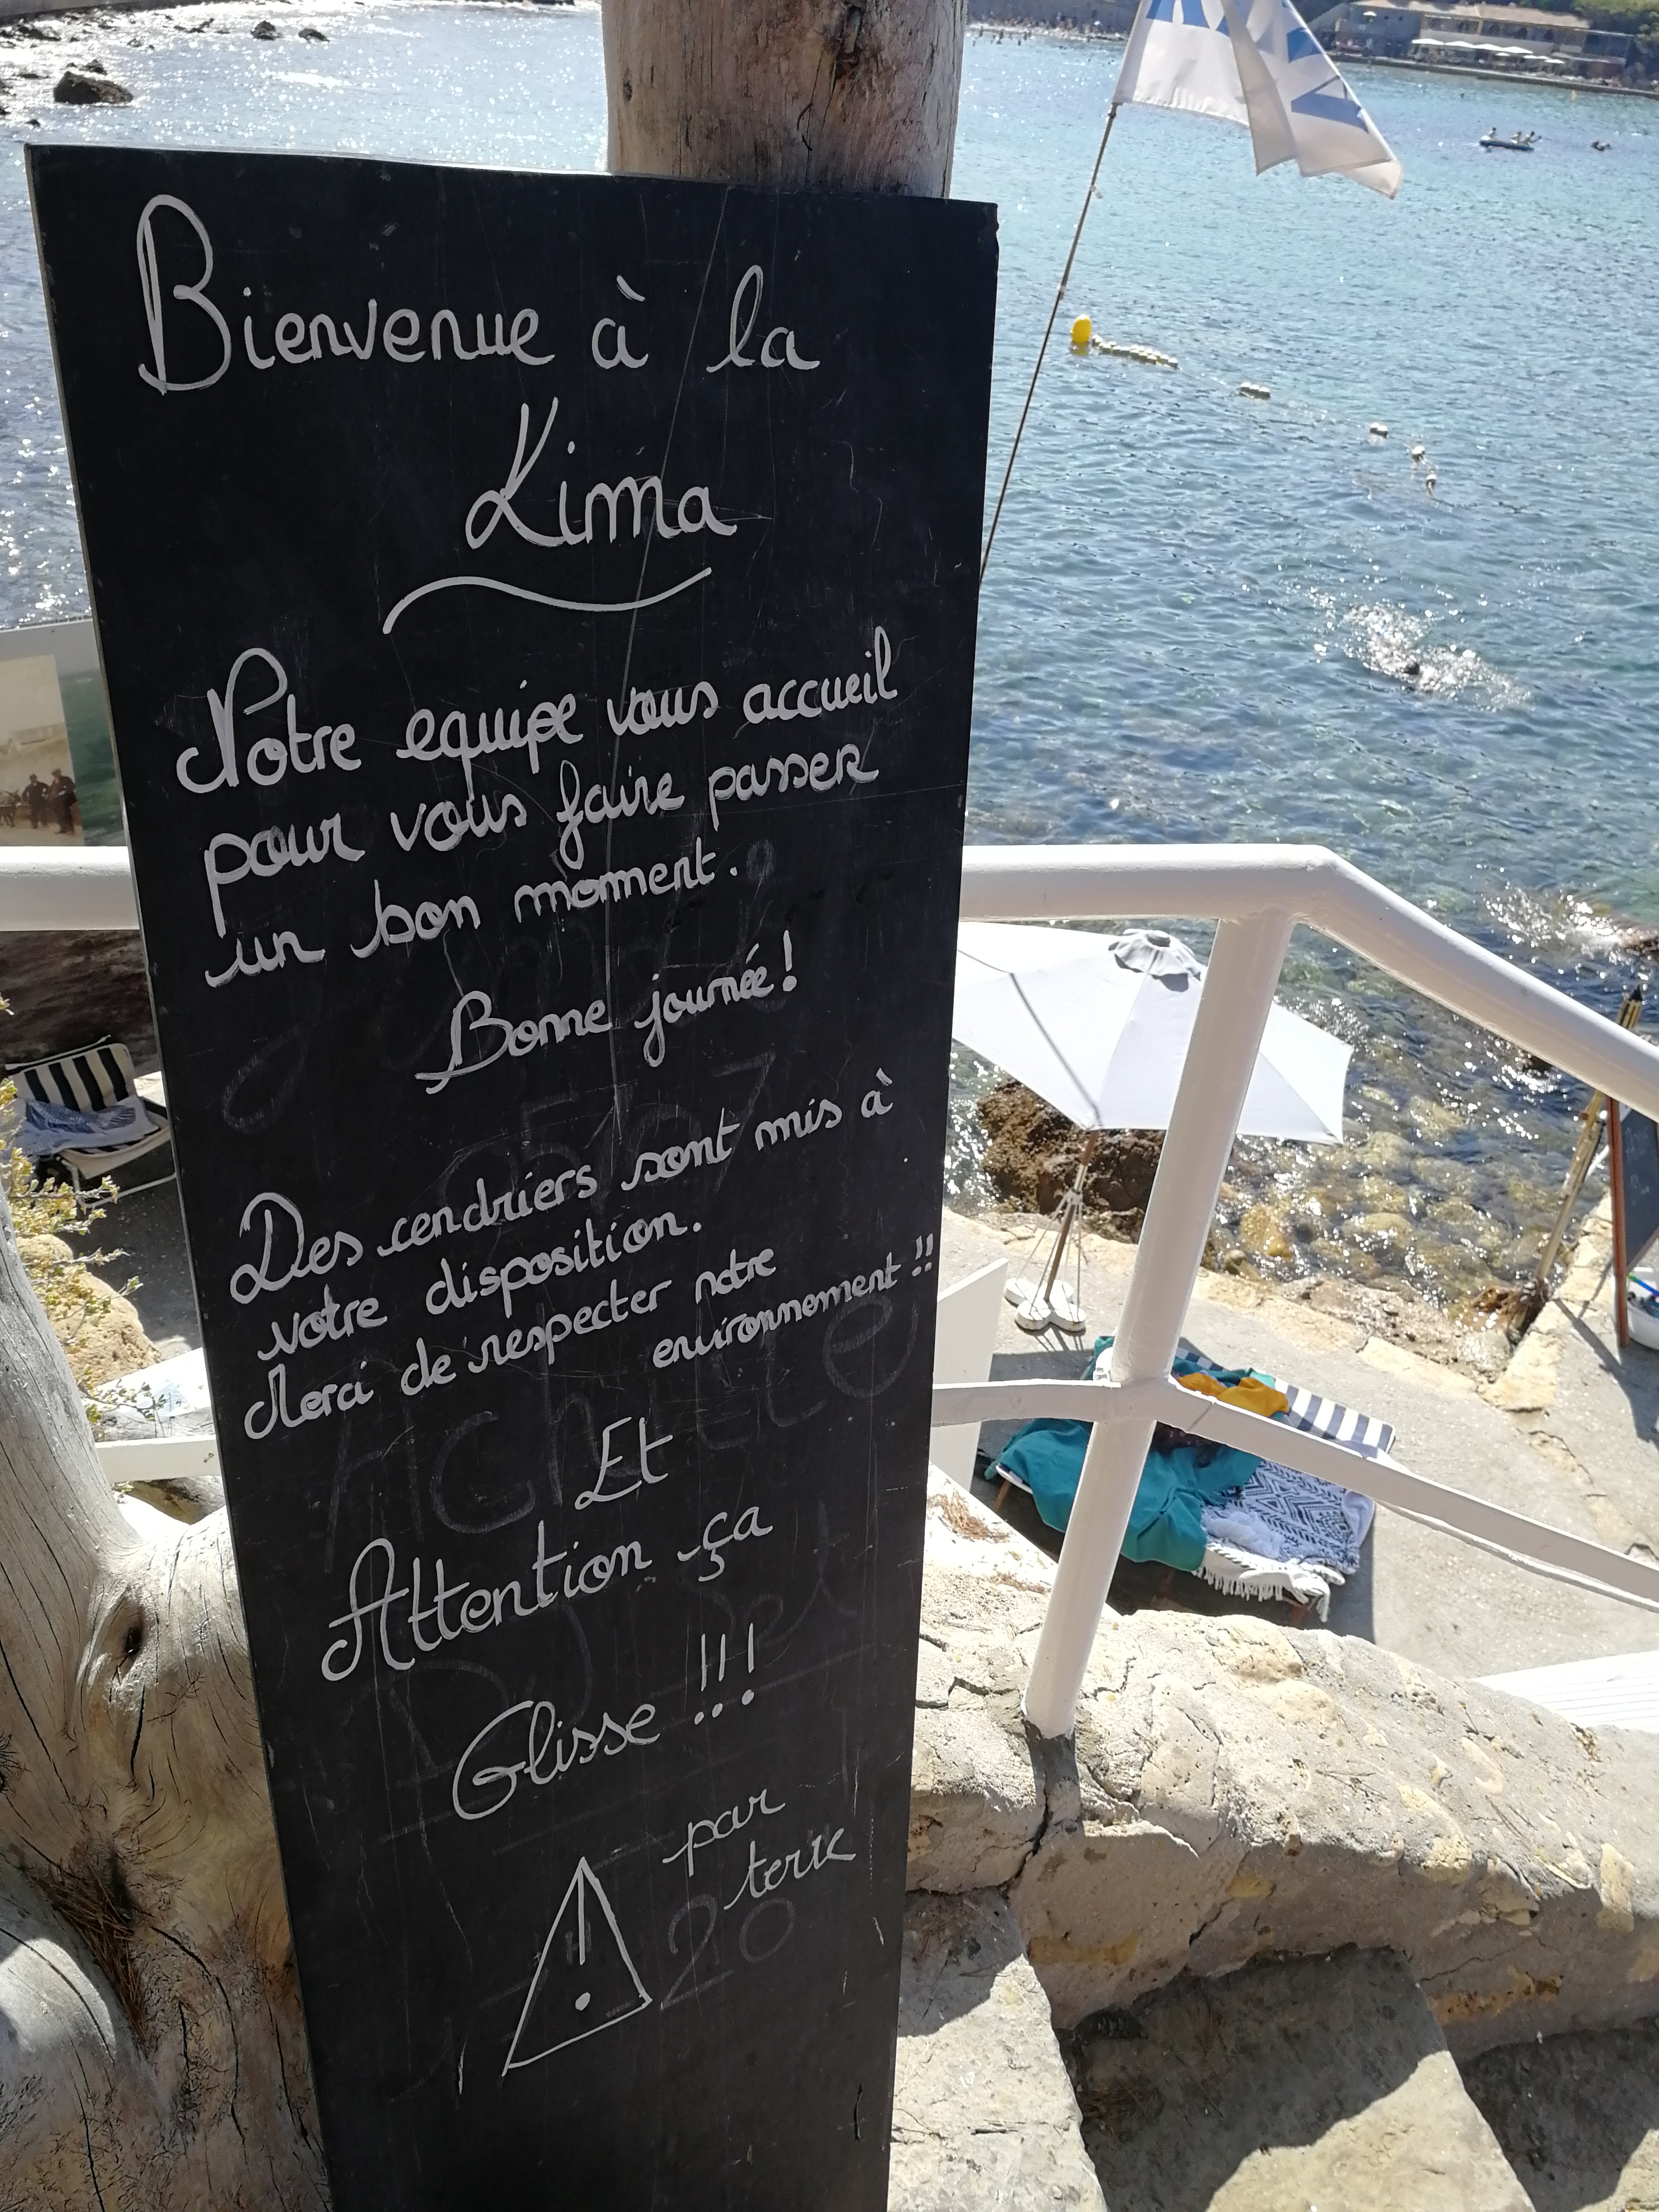 Bienvenue à la
Kima
Notre equipe vous accueil
pour vous faire passer
un bon moment.
Bonne journée!
Des cendriers sont mis à
votre disposition.
Merci de respecter notre
environnement !!
Et
Attention ça
Glisse !!!
par
terre
20